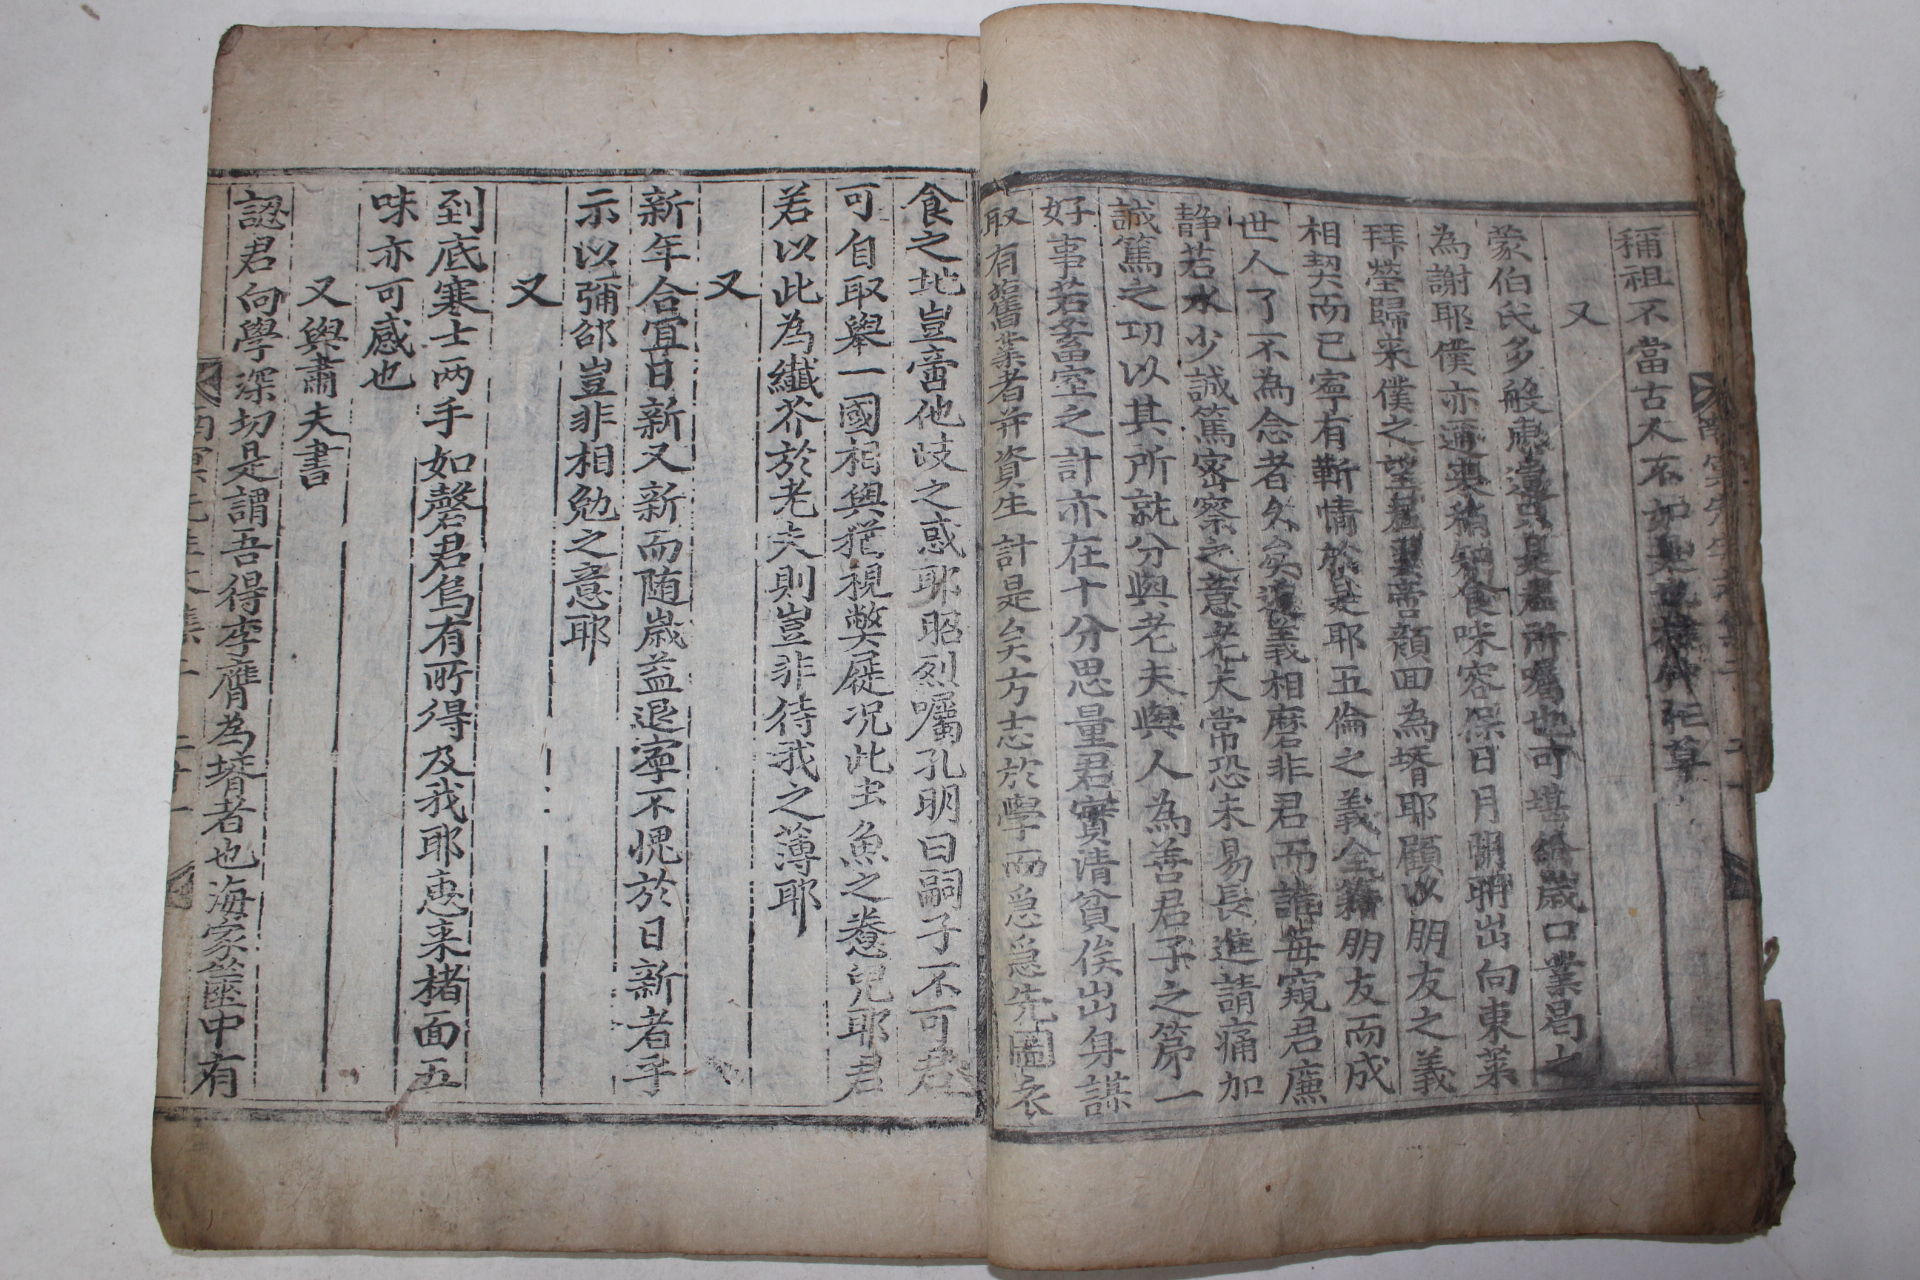 稱祖不當古人不如是也
又
蒙伯氏多般惠遺只是君所囑也可堪給歲口業曷之
為謝耶僕亦逋寒稍知食味容保日月開朔出向東萊
拜塋歸來僕之望君豈啻顔面為壻耶顧以朋友之義
相契而已寧有靳情於是耶五倫之義全籍朋友而成
世人了不為念者久矣遑遑義相磨非君而誰每窺君廉
靜若水少誠篤密察之意老夫常恐未易長進請痛加
誠篤之功以其所就分與老夫與人為善君子之第一
好事若畜室之計亦在十分思量君實清貧俟出身謀
取有舊業者幷資生計是矣方志於學而急急先圖衣
食之地豈啻他歧之惑耶昭烈囑孔明曰嗣子不可君
可自取擧一國相與猶視弊屣况此虫魚之養兒耶君
若以此為纖芥於老夫則豈非待我之薄耶
又
新年合宜日新又新而随歲益退寧不愧於日新者乎
示以彌邵豈非相勉之意耶
又
到底寒士两手如磬君烏有所得及我耶惠来楮面五
味亦可感也
又與肅夫書
認君向學深切是謂吾得李膺為壻者也海家奩中有
南冥先生文集二 二十一